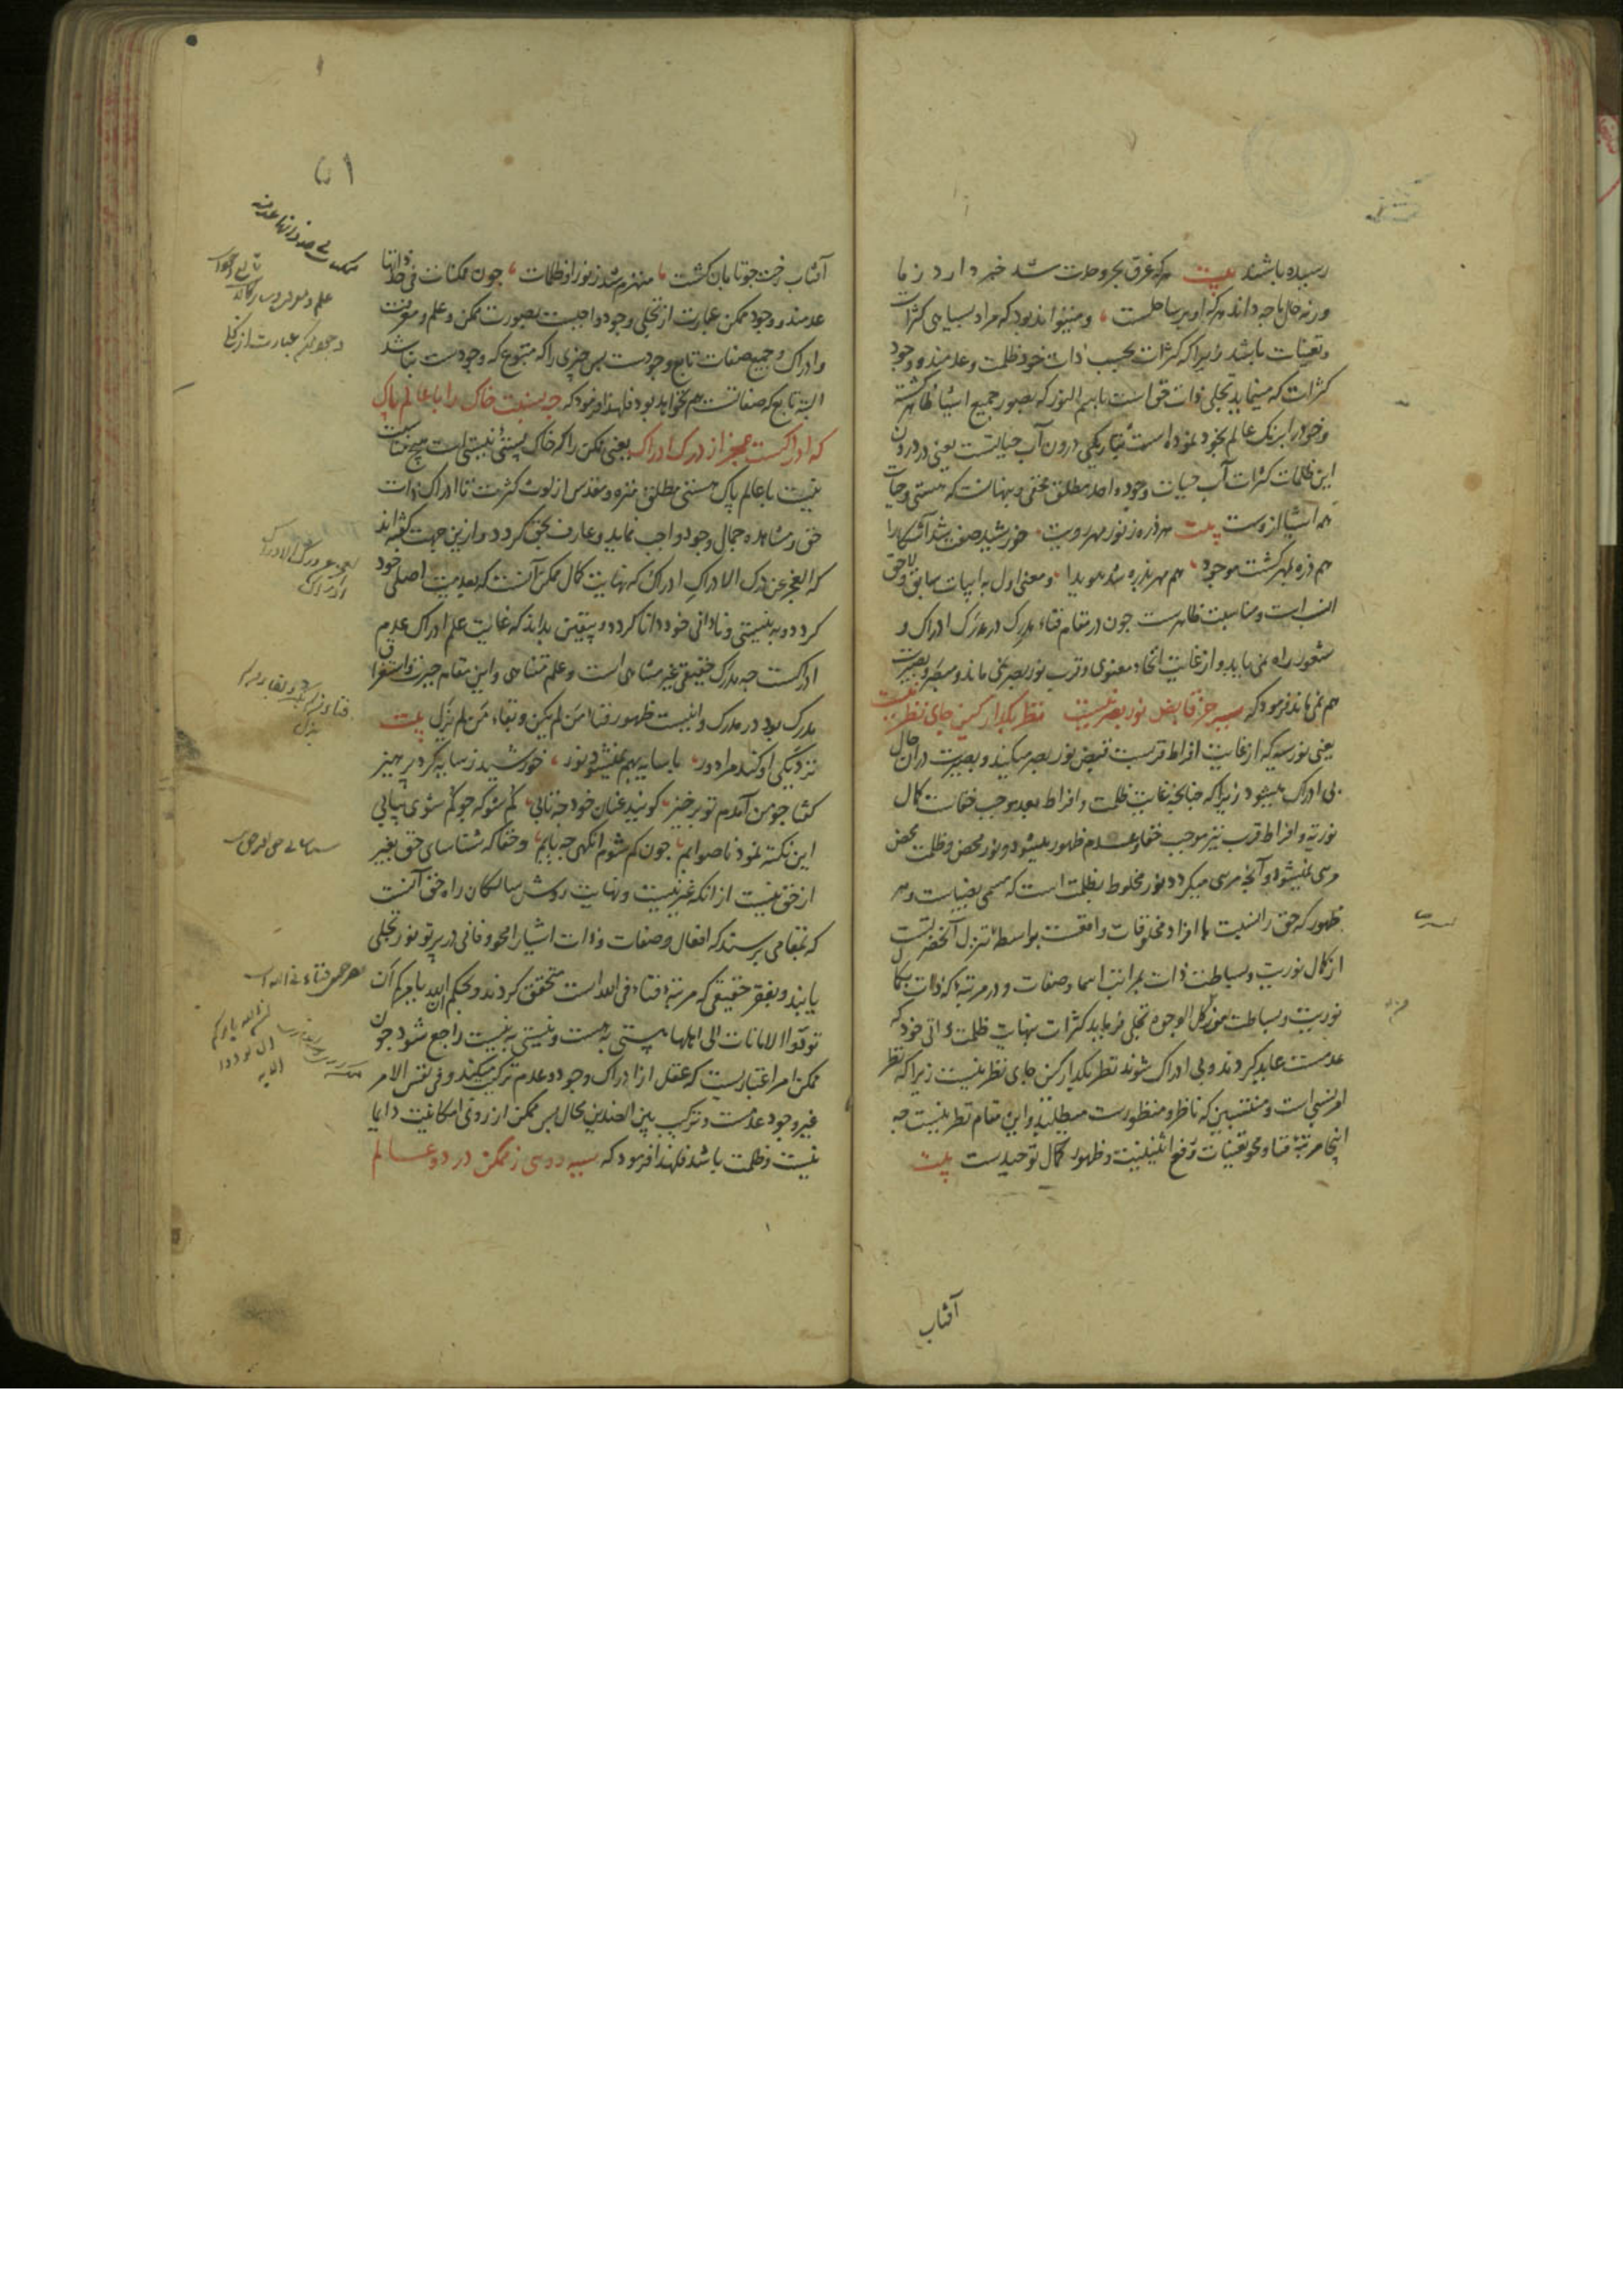 رسیده باشند بیت هرکه غرق بحر وحدت شد خبر دارد ز ما
ورنه حال ما چه داند هرکه او بر ساحلست، و میتواند بود که مراد بسیاهی کثرات
و تعینات باشد زیرا که کثرات بحسب ذات خود ظلمت و عدمند و وجود
کثرات که مینماید تجلی ذات حق است باسم النور که بصور جمیع اشیا ظاهر گشته
و خود را برنک عالم بخود نموده است بتاریکی درون آب حیاتست یعنی در درون
این ظلمات کثرات آب حیات وجود واحد مطلق مخفی و پنهانست که هستی و حیات
همه اشیا ازوست بیت هر ذره ز نور مهر رویت خورشید صفت شد آشکارا
هم ذره بمهر گشت موجود، هم مهر بذره شد هویدا و معنی اول به ابیات سابق و لاحق
انسب است و مناسبت ظاهرست چون در مقام فناء مدرِک در مدرَک ادراک و
شعور راه نمی یابد و از غایت اتحاد معنوی و قرب نور بصر نمی ماند و مبصر و بصیرت
هم نمی ماند فرمود که سیه جز قابض نور بصر نیست نظر بگذار کین جای نظر نیست
یعنی نور سیه که از غایت افراط قربست قبض نور بصر میکند و بصیرت در آن حال
بی ادراک میشود زیرا که چنانچه غایت ظلمت و افراط بعد موجب خفاست کمال
نوریه و افراط قرب نیز موجب خفا و عدم ظهور میشود و نور محض و ظلمت محض
مرئی نمیشود و آنچه مرئی میگردد نور مخلوط بظلمت است که مسمی بضیاست و هر
ظهور که حق را نسبت با افراد مخلوقات واقعست بواسطه تنزل آنحضرتست
از کمال نوریت و بساطت ذات بمراتب اسما و صفات و در مرتبه که ذات بکمال
نوریت و بساطت من کل الوجوه تجلی فرماید کثرات بنهایت ظلمت ذاتی خود که
عدمست عاید گردند و بی ادراک شوند نظر بگذار کین جای نظر نیست زیرا که نظر
امر نسبی است و منتسبین که ناظر و منظورست میطلبد و این مقام نظر نیست چه
اینجا مرتبه فنا و محو تعینات و رفع اثنینیت و ظهور کمال توحیدست بیت
آفتاب
آفتاب رخت چو تابان گشت، منهزم شد ز نور او ظلمات، چون ممکنات فی حد ذاتها
عدمند و وجود ممکن عبارت از تجلی وجود واجبست بصورت ممکن و علم و معرفت
و ادراک و جمیع صفات تابع وجودست پس چیزی را که متبوع که وجودست نباشد
البته تابع که صفاتست هم نخواهد بود فلهذا فرمود که چه نسبت خاک را با عالم پاک
که ادراکست عجز از درک ادراک یعنی ممکن را که خاک پستئ نیستی است هیچ نسبت
نیست با عالم پاک هستی مطلق منزه و مقدس از لوث کثرت تا ادراک ذات
حق و مشاهده جمال وجود واجب نماید و عارف بحق گردد و ازین جهت گفته اند
که العجز عن درک الادراک ادراک که نهایت کمال ممکن آنست که بعدمیت اصلی خود
گردد و به نیستی و نادانی خود دانا گردد و بیقین بداند که غایت علم ادراک عدم
ادراکست چه مدرک حقیقی غیر متناهی است و علم متناهی و این مقام حیرت و استغراق
مدرِک بود در مدرَک و اینست ظهور فناء من لم یکن و بقاء من لم یزل بیت
نزدیکی او کند مرا دور، با سایه بهم نمیشود نور، خورشید ز سایه کرد پرهیز
گفتا چو من آمدم تو برخیز، گویند عنان خود چه تابی، گم شو که چو گم شوی بیابی
این نکته نمود ناصوابم، چون گم شوم آنگهی چه یابم، و حقا که شناسای حق بغیر
از حق نیست از آنکه غیر نیست و نهایت روش سالکان راه حق آنست
که بمقامی برسند که افعال و صفات و ذات اشیا را محو و فانی در پرتو نور تجلی
یابند و بفقر حقیقی که مرتبه فناء فی الله است متحقق گردند و بحکم ان الله یامرکم ان
تودوا الامانات الی اهلها هستی به هست و نیستی به نیست راجع شود چون
ممکن امر اعتباریست که عقل از ادراک وجود و عدم ترکیب میکند و فی نفس الامر
غیر وجود عدمست و ترکیب بین الضدین محال پس ممکن از روی امکانیت دایما
نیست و ظلمت باشد فلهذا فرمود که سیه روئی ز ممکن در دو عالم